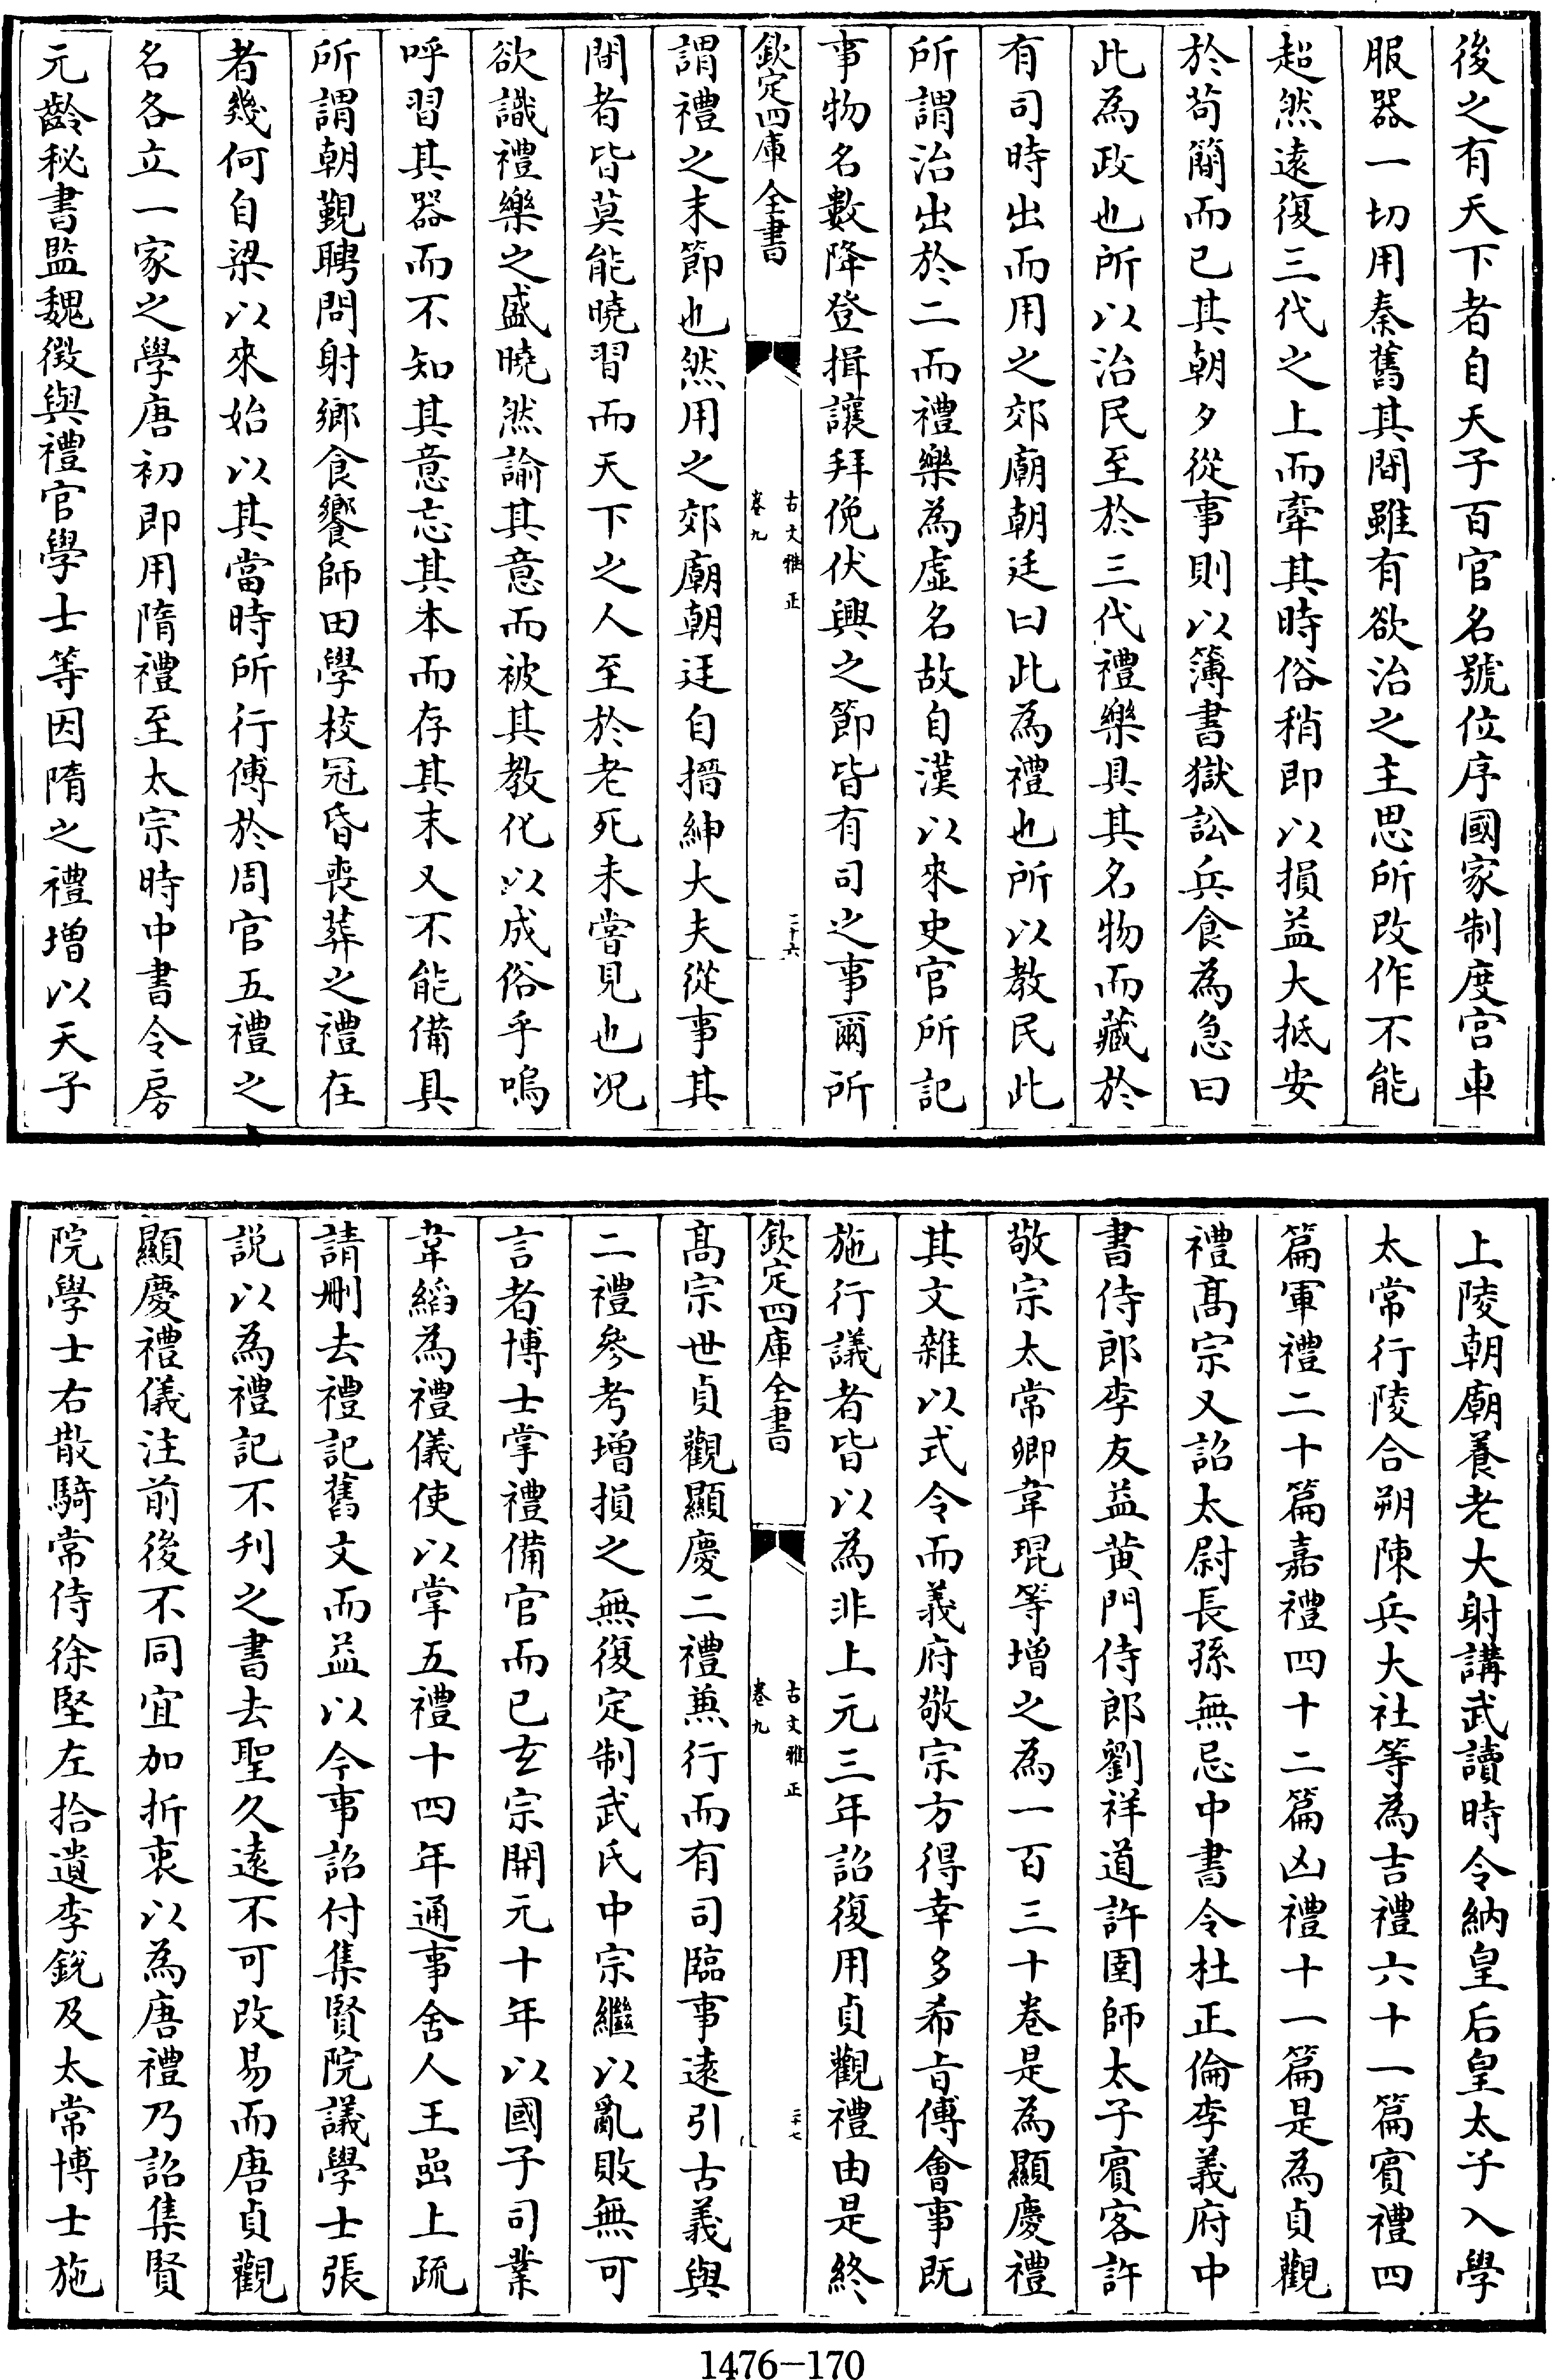 後之有天下者自天子百官名號位序國家制度宫車
服器一切用秦舊其間雖有欲治之主思所改作不能
超然逺復三代之上而牽其時俗稍即以損益大抵安
於苟簡而已其朝夕從事則以簿書獄訟兵食為急曰
此為政也所以治民至於三代禮樂具其名物而藏於
有司時出而用之郊廟朝廷曰此為禮也所以教民此
所謂治出於二而禮樂為虚名故自漢以來史官所記
事物名數降登揖讓拜俛伏興之節皆有司之事爾所
欽定四庫全書
古文雅正
卷九
二十六
謂禮之末節也然用之郊廟朝廷自搢紳大夫從事其
間者皆莫能曉習而天下之人至於老死未嘗見也况
欲識禮樂之盛曉然諭其意而被其教化以成俗乎嗚
呼習其器而不知其意忘其本而存其末又不能備具
所謂朝覲聘問射鄉食饗師田學校冠昏喪葬之禮在
者幾何自梁以來始以其當時所行傅於周官五禮之
名各立一家之學唐初即用隋禮至太宗時中書令房
元齡秘書監魏徴與禮官學士等因隋之禮增以天子
上陵朝廟養老大射講武讀時令納皇后皇太子入學
太常行陵合朔陳兵大社等為吉禮六十一篇賓禮四
篇軍禮二十篇嘉禮四十二篇凶禮十一篇是為貞觀
禮髙宗又詔太尉長孫無忌中書令杜正倫李義府中
書侍郎李友益黄門侍郎劉祥道許圉師太子賓客許
敬宗太常卿韋琨等增之為一百三十巻是為顯慶禮
其文雜以式令而義府敬宗方得幸多希㫖傅會事既
施行議者皆以為非上元三年詔復用貞觀禮由是終
欽定四庫全書
古文雅正
卷九
二十七
髙宗世貞觀顯慶二禮兼行而有司臨事逺引古義與
二禮參考增損之無復定制武氏中宗繼以亂敗無可
言者博士掌禮備官而已玄宗開元十年以國子司業
韋縚為禮儀使以掌五禮十四年通事舍人王嵒上疏
請刪去禮記舊文而益以今事詔付集賢院議學士張
説以為禮記不刋之書去聖久逺不可改易而唐貞觀
顯慶禮儀注前後不同宜加折衷以為唐禮乃詔集賢
院學士右散騎常侍徐堅左拾遺李鋭及太常博士施
1476-170